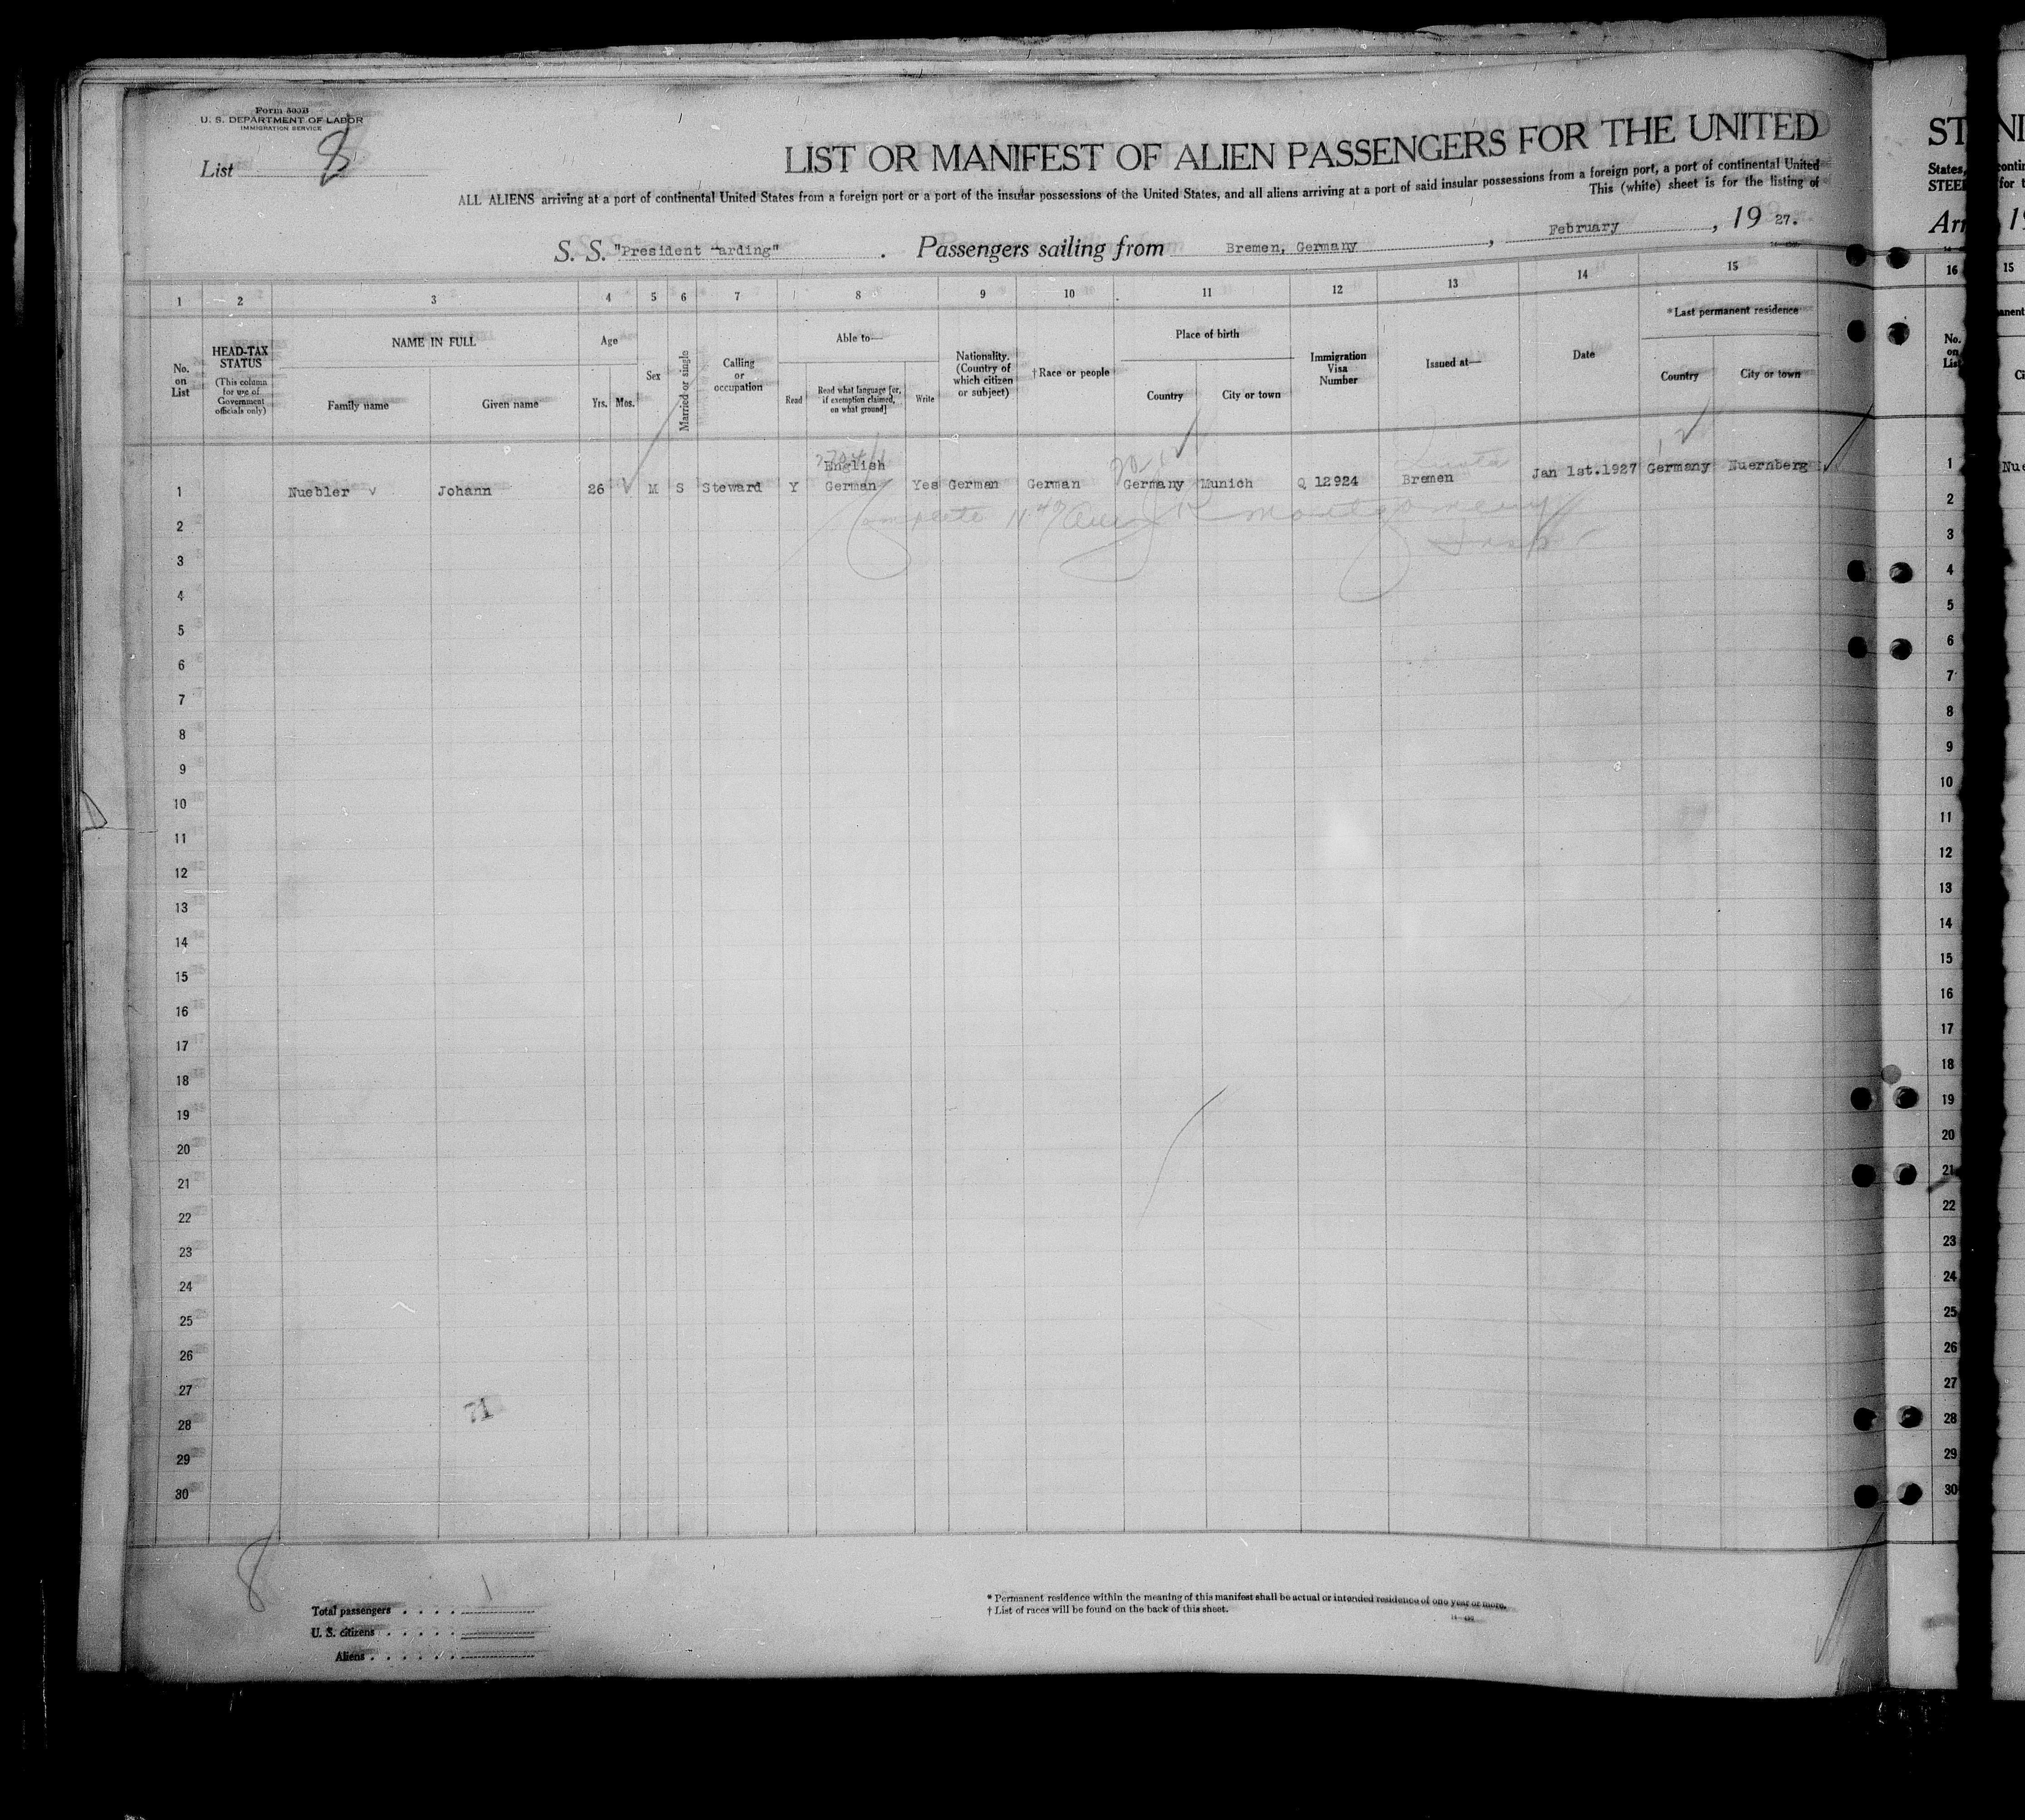 Form 500B
U. S. DEPARTMENT OF LABOR
IMMIGRATION SERVICE
List 8
LIST OR MANIFEST OF ALIEN PASSENGERS FOR THE UNITED
ALL ALIENS arriving at a port of continental United States from a foreign port or a port of the insular possessions of the United States, and all aliens arriving at a port of said insular possessions from a foreign port, a port of continental United
This (white) sheet is for the listing of
S. S. "President arding" . Passengers sailing from Bremen, Germany , February , 19 27.
1 2 3 4 5 6 7 8 9 10 11 12 13 14 15
No. on List
HEAD-TAX STATUS
(This column for use of Government officials only)
NAME IN FULL
Family name Given name
Age
Yrs. Mos.
Sex
Married or single
Calling or occupation
Able to—
Read
Read what language [or, if exemption claimed, on what ground]
Write
Nationality. (Country of which citizen or subject)
†Race or people
Place of birth
Country City or town
Immigration Visa Number
Issued at—
Date
*Last permanent residence
Country City or town
English
1 Nuebler v Johann 26 M S Steward Y German Yes German German Germany Munich Q 12924 Bremen Jan 1st.1927 Germany Nuernberg
Montgomery
Insp.
2
3
4
5
6
7
8
9
10
11
12
13
14
15
16
17
18
19
20
21
22
23
24
25
26
27
71
28
29
30
8
Total passengers . . . . 1
U. S. citizens . . . . .
Aliens . . . . . .
* Permanent residence within the meaning of this manifest shall be actual or intended residence of one year or more.
† List of races will be found on the back of this sheet.
ST
States,
STEE
Arr
16
No. on List
1
2
3
4
5
6
7
8
9
10
11
12
13
14
15
16
17
18
19
20
21
22
23
24
25
26
27
28
29
30
NI
contin
for t
19
15
anent
Ci
Nue